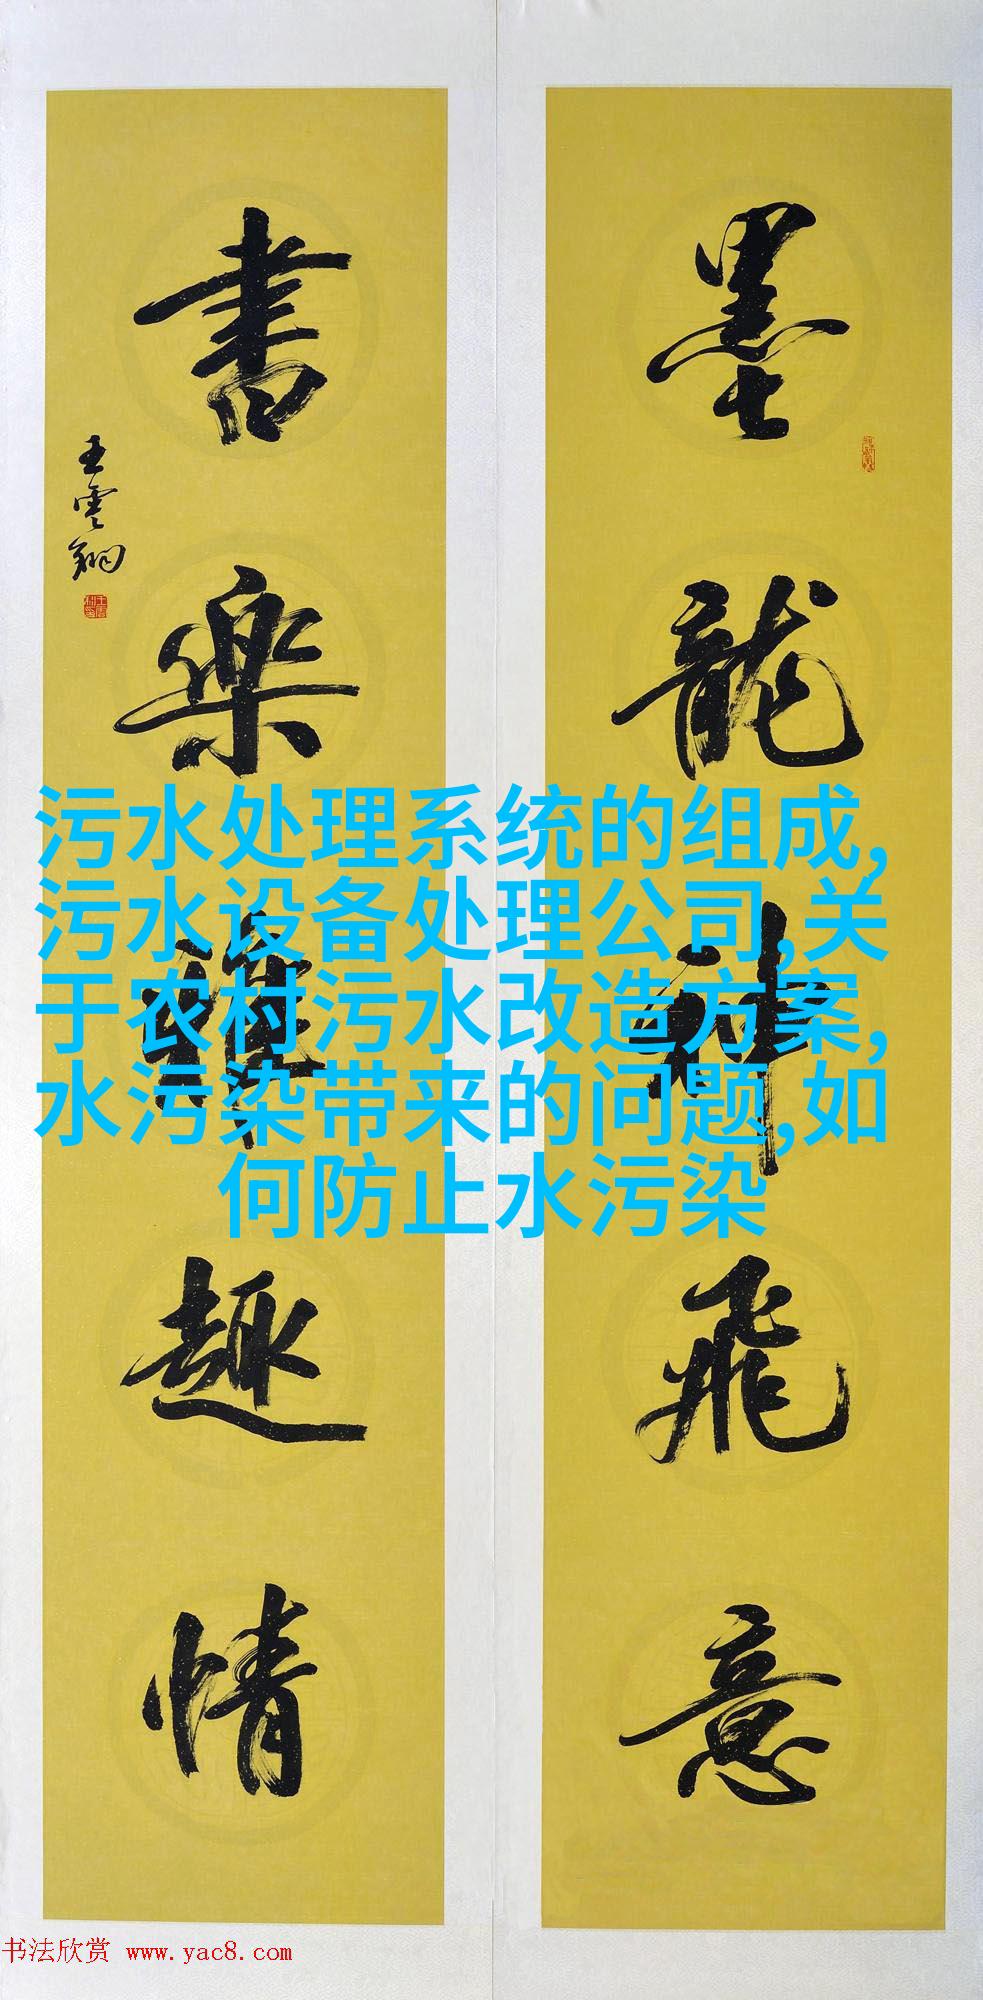 墨
龍
神
飛
意
書
楽
趣
情
王雲翔
污水处理系统的组成,
污水设备处理公司,关
于农村污水改造方案,
水污染带来的问题,如
何防止水污染
书法欣赏 www.yac8.com